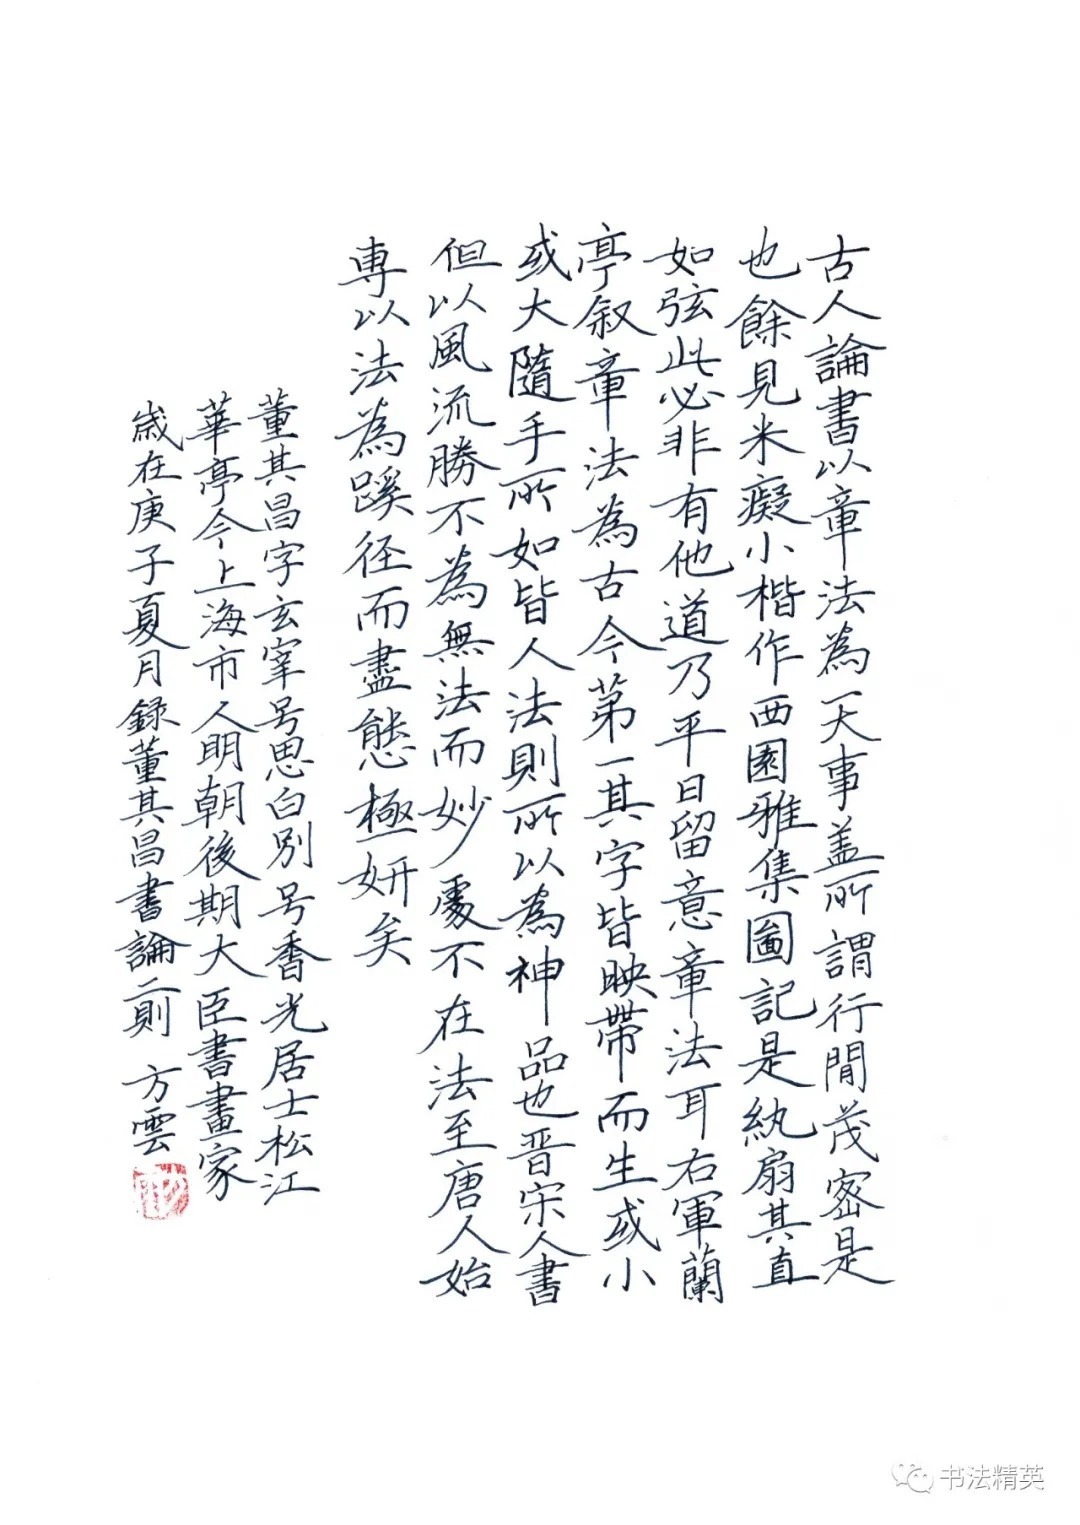 古人論書以章法為一大事盖所謂行間茂密是
也餘見米癡小楷作西園雅集圖記是紈扇其直
如弦此必非有他道乃平日留意章法耳右軍蘭
亭叙章法為古今第一其字皆映帶而生或小
或大隨手所如皆人法則所以為神品也晋宋人書
但以風流勝不為無法而妙處不在法至唐人始
專以法為蹊径而盡態極妍矣
董其昌字玄宰号思白別号香光居士松江
華亭今上海市人明朝後期大臣書畫家
歲在庚子夏月録董其昌書論二則 方雲
书法精英